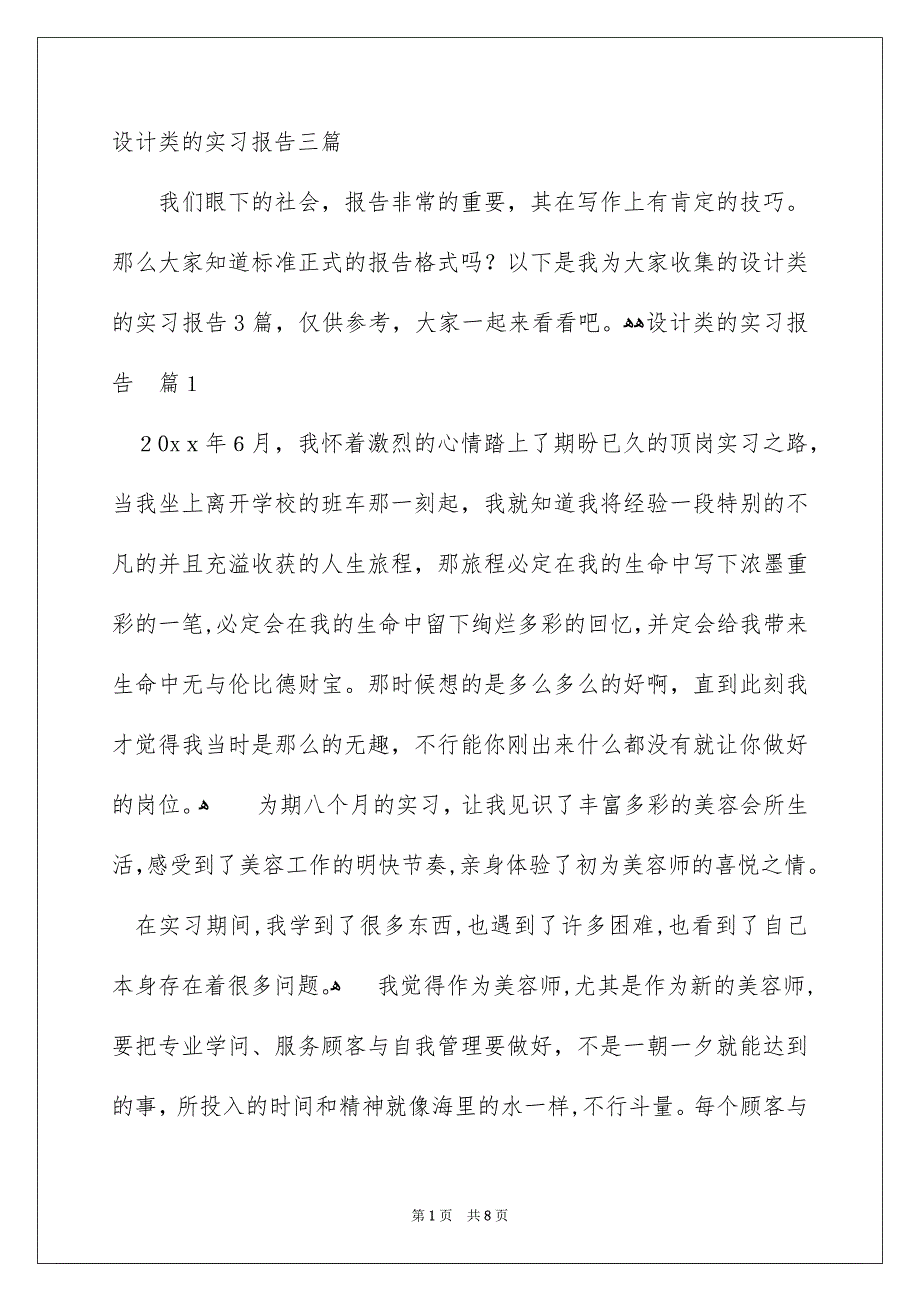 设计类的实习报告三篇
我们眼下的社会，报告非常的重要，其在写作上有肯定的技巧。
那么大家知道标准正式的报告格式吗？以下是我为大家收集的设计类
的实习报告3篇，仅供参考，大家一起来看看吧。ﻫﻫ设计类的实习报
告　篇1
20xｘ年6月，我怀着激烈的心情踏上了期盼已久的顶岗实习之路，
当我坐上离开学校的班车那一刻起，我就知道我将经验一段特别的不
凡的并且充溢收获的人生旅程，那旅程必定在我的生命中写下浓墨重
彩的一笔,必定会在我的生命中留下绚烂多彩的回忆，并定会给我带来
生命中无与伦比德财宝。那时候想的是多么多么的好啊，直到此刻我
才觉得我当时是那么的无趣，不行能你刚出来什么都没有就让你做好
的岗位。ﻫ　　为期八个月的实习，让我见识了丰富多彩的美容会所生
活,感受到了美容工作的明快节奏,亲身体验了初为美容师的喜悦之情。
在实习期间,我学到了很多东西,也遇到了许多困难,也看到了自己
本身存在着很多问题。ﻫ　　我觉得作为美容师,尤其是作为新的美容师,
要把专业学问、服务顾客与自我管理要做好，不是一朝一夕就能达到
的事，所投入的时间和精神就像海里的水一样,不行斗量。每个顾客与
第1页　共8页